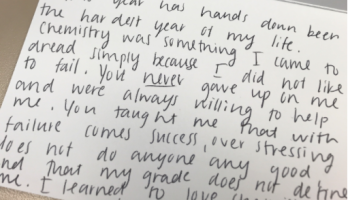 year has hands down been
the hardest year of my life.
Chemistry was something I came to
dread simply because I did not like
to fail. You never gave up on me
and were always willing to help
me. You taught me that with
failure comes success, over stressing
does not do anyone any good
and that my grade does not define
me. I learned to love